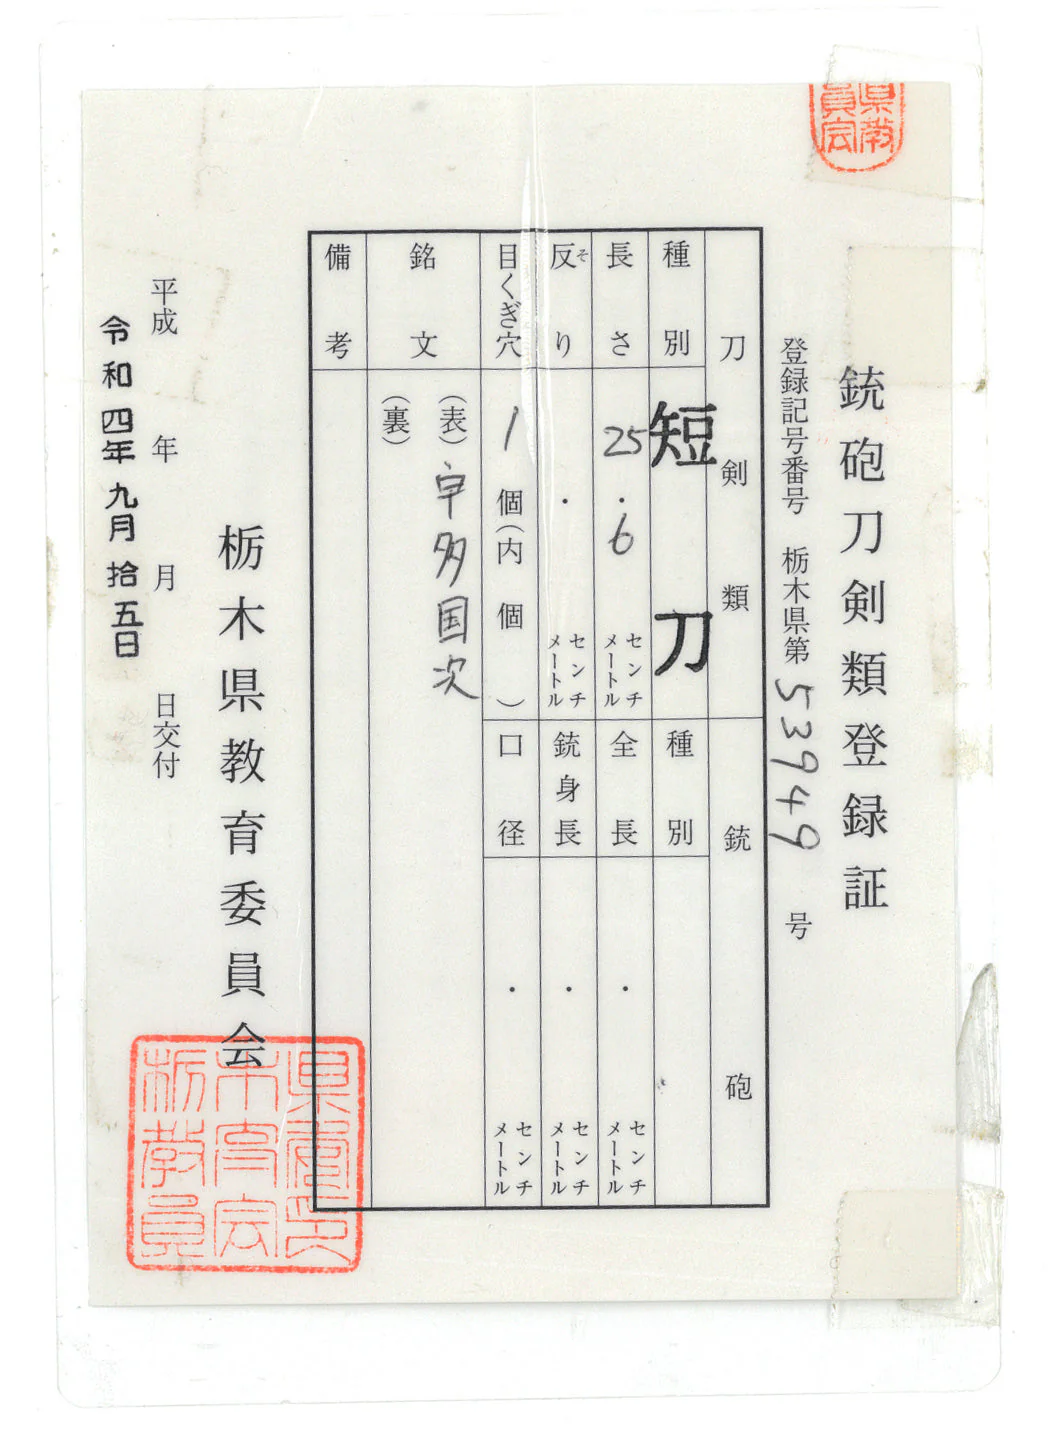 銃砲刀剣類登録証
登録記号番号 栃木県第 53949 号
刀剣類
種別 短刀
長さ 25.6 センチメートル
反り そ ・ センチメートル
目くぎ穴 1個(内 個)
銘文 (表) 宇多国次
(裏)
備考
銃砲
種別
全長 ・ センチメートル
銃身長 ・ センチメートル
口径 ・ センチメートル
栃木県教育委員会
平成 年 月 日交付
令和四年九月拾五日